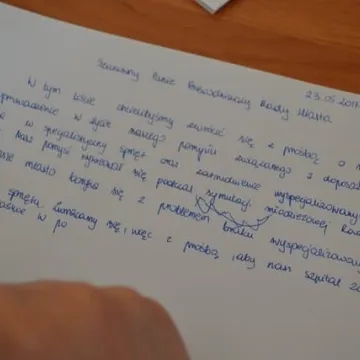 23.05.201
Szanowny Panie Przewodniczący Rady Miasta
W tym liście chcielibyśmy zwrócić się z prośbą o
wprowadzenie w życie naszego pomysłu związanego z
w specjalistyczny sprzęt oraz zatrudnienie wyspecjalizowanej
Nasz pomysł wynikał się podczas symulacji młodzieżowej Rad
miasto boryka się z problemem braku wyspecjalizowan
sprzętu. Zwracamy się więc z prośbą, aby nasz szpital
w po